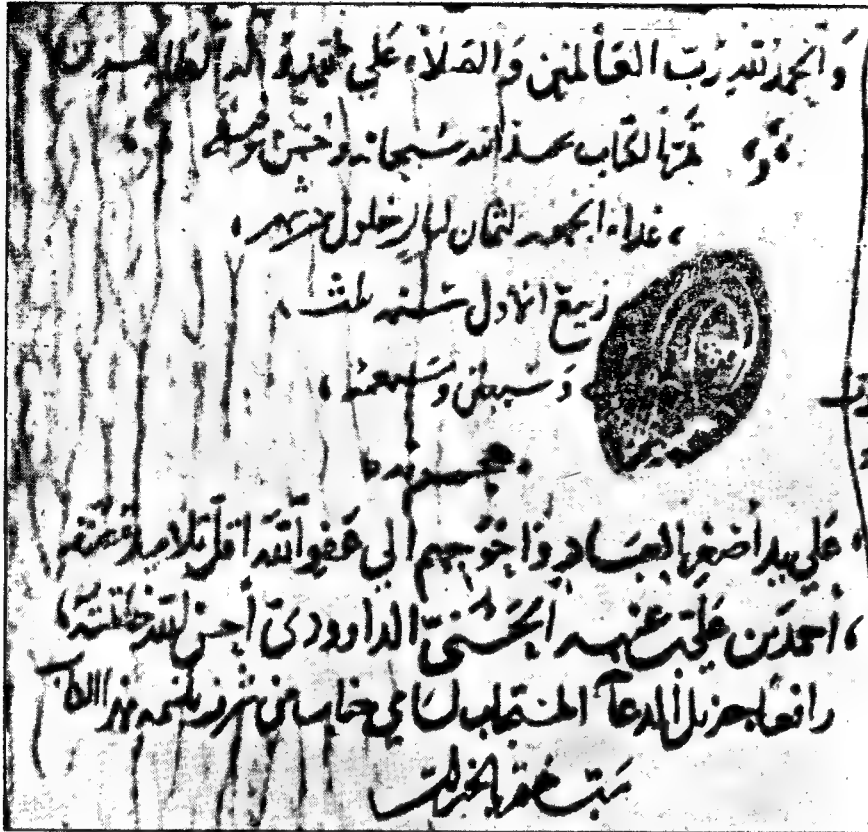 والحمد لله رب العالمين والصلاة علي محمد واله الطاهرين
تم الكتاب بحمد الله سبحانه وحسن توفيقه
غداة الجمعه لثمان ليال خلون من شهر
ربيع الاول سنه ثلث
وسبعين وسبعمئة
هجرية
علي يد أصغر العباد واحوجهم الي عفو الله اقل تلاميذ مصنفه
أحمد بن علي بن عنبه الحسني الداوودي أحسن الله خاتمته
رافعا جزيل الدعآ المستجاب لسامي جناب من شرف بلثمه هذا الكتاب